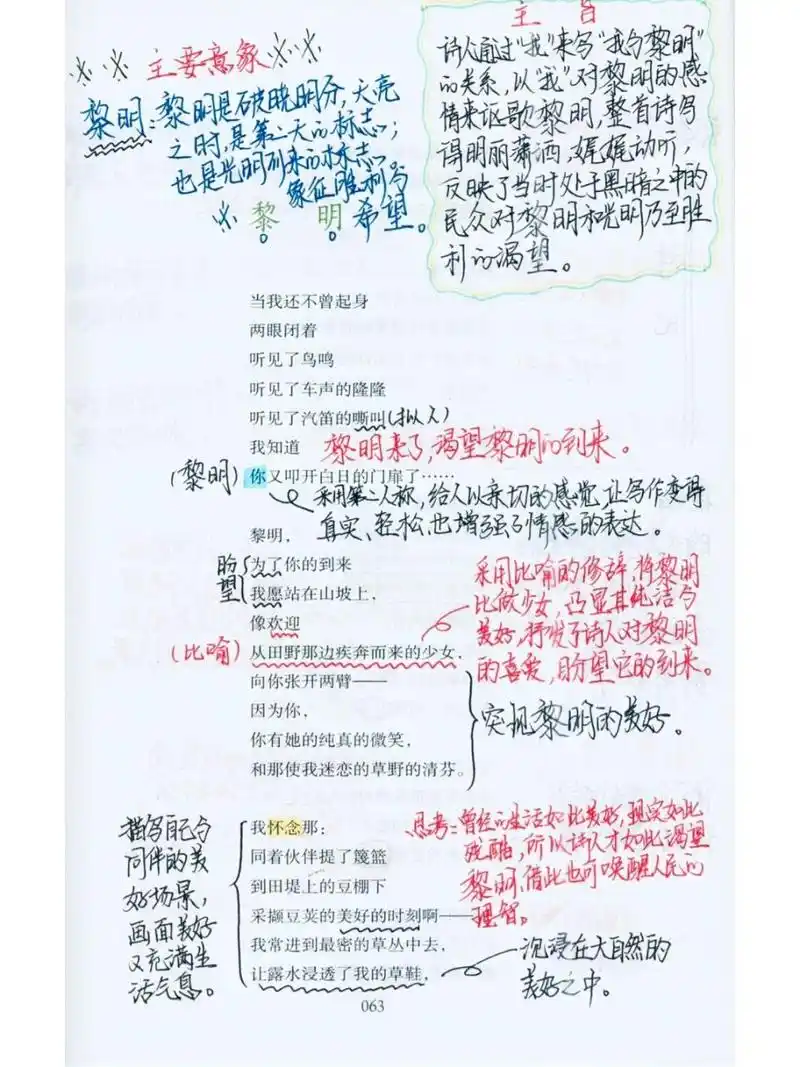 主要意象
黎明：黎明是破晓明分，天亮
之时，是第二天的标志；
也是光明到来的标志。
象征胜利与
希望。
主 旨
诗人通过“我”来写“我与黎明”
的关系，以“我”对黎明的感
情来讴歌黎明，整首诗写
得明丽潇洒，娓娓动听，
反映了当时处于黑暗之中的
民众对黎明和光明乃至胜
利的渴望。
黎 明
当我还不曾起身
两眼闭着
听见了鸟鸣
听见了车声的隆隆
听见了汽笛的嘶叫(拟人)
我知道 黎明来了，渴望黎明的到来。
(黎明)你又叩开白日的门扉了……
采用第二人称，给人以亲切的感觉，让写作变得
真实、轻松，也增强了情感的表达。
黎明，
盼望
为了你的到来
我愿站在山坡上，
像欢迎
(比喻)从田野那边疾奔而来的少女，
采用比喻的修辞，将黎明
比做少女，凸显其纯洁与
美好，抒发了诗人对黎明
的喜爱，盼望它的到来。
向你张开两臂——
因为你，
你有她的纯真的微笑，
和那使我迷恋的草野的清芬。
突现黎明的美好。
我怀念那：
同着伙伴提了篾篮
到田堤上的豆棚下
采撷豆荚的美好的时刻啊——
我常进到最密的草丛中去，
让露水浸透了我的草鞋，
描写自己与
同伴的美
好场景，
画面美好
又充满生
活气息。
思考：曾经的生活如此美好，现实如此
残酷，所以诗人才如此渴望
黎明，借此也可唤醒人民的
理智。
沉浸在大自然的
美好之中。
063